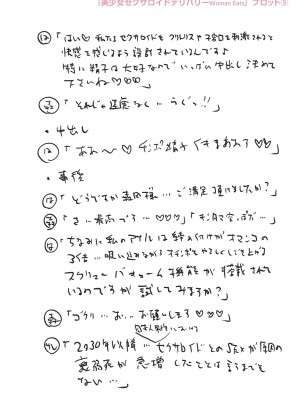 『美少女セクサロイドデリバリーWoman Eats』 プロット⑤
「はい♡ 私たちセクサロイドも クリトリスや子宮口を刺激されると
快感を感じるよう設計されているんです♪
特に精子は大好なので いっぱい中出し 決めて
下さいね♡」
「それじゃ遠慮なく… うぐっ!!」
・中出し
「ああ〜♡ チンポ精子 くすまあああ♡♡」
・事後
「どうですか 様… ご満足頂けましたか?」
「さ… 最高です… ♡♡♡」「 …」
「ちなみに私のアナルは 締めつけがオマンコの
3倍… 吸い込みながらオチンポをやさしくしごき上げる
スクリューバキューム機能が搭載されて
いるのですが 試してみますか?」
「ゴクリ… お… お願いします♡」
「2030年以降… セクサロイドとのSEXが原因の
 が急増したことは言うまでも
ない…」